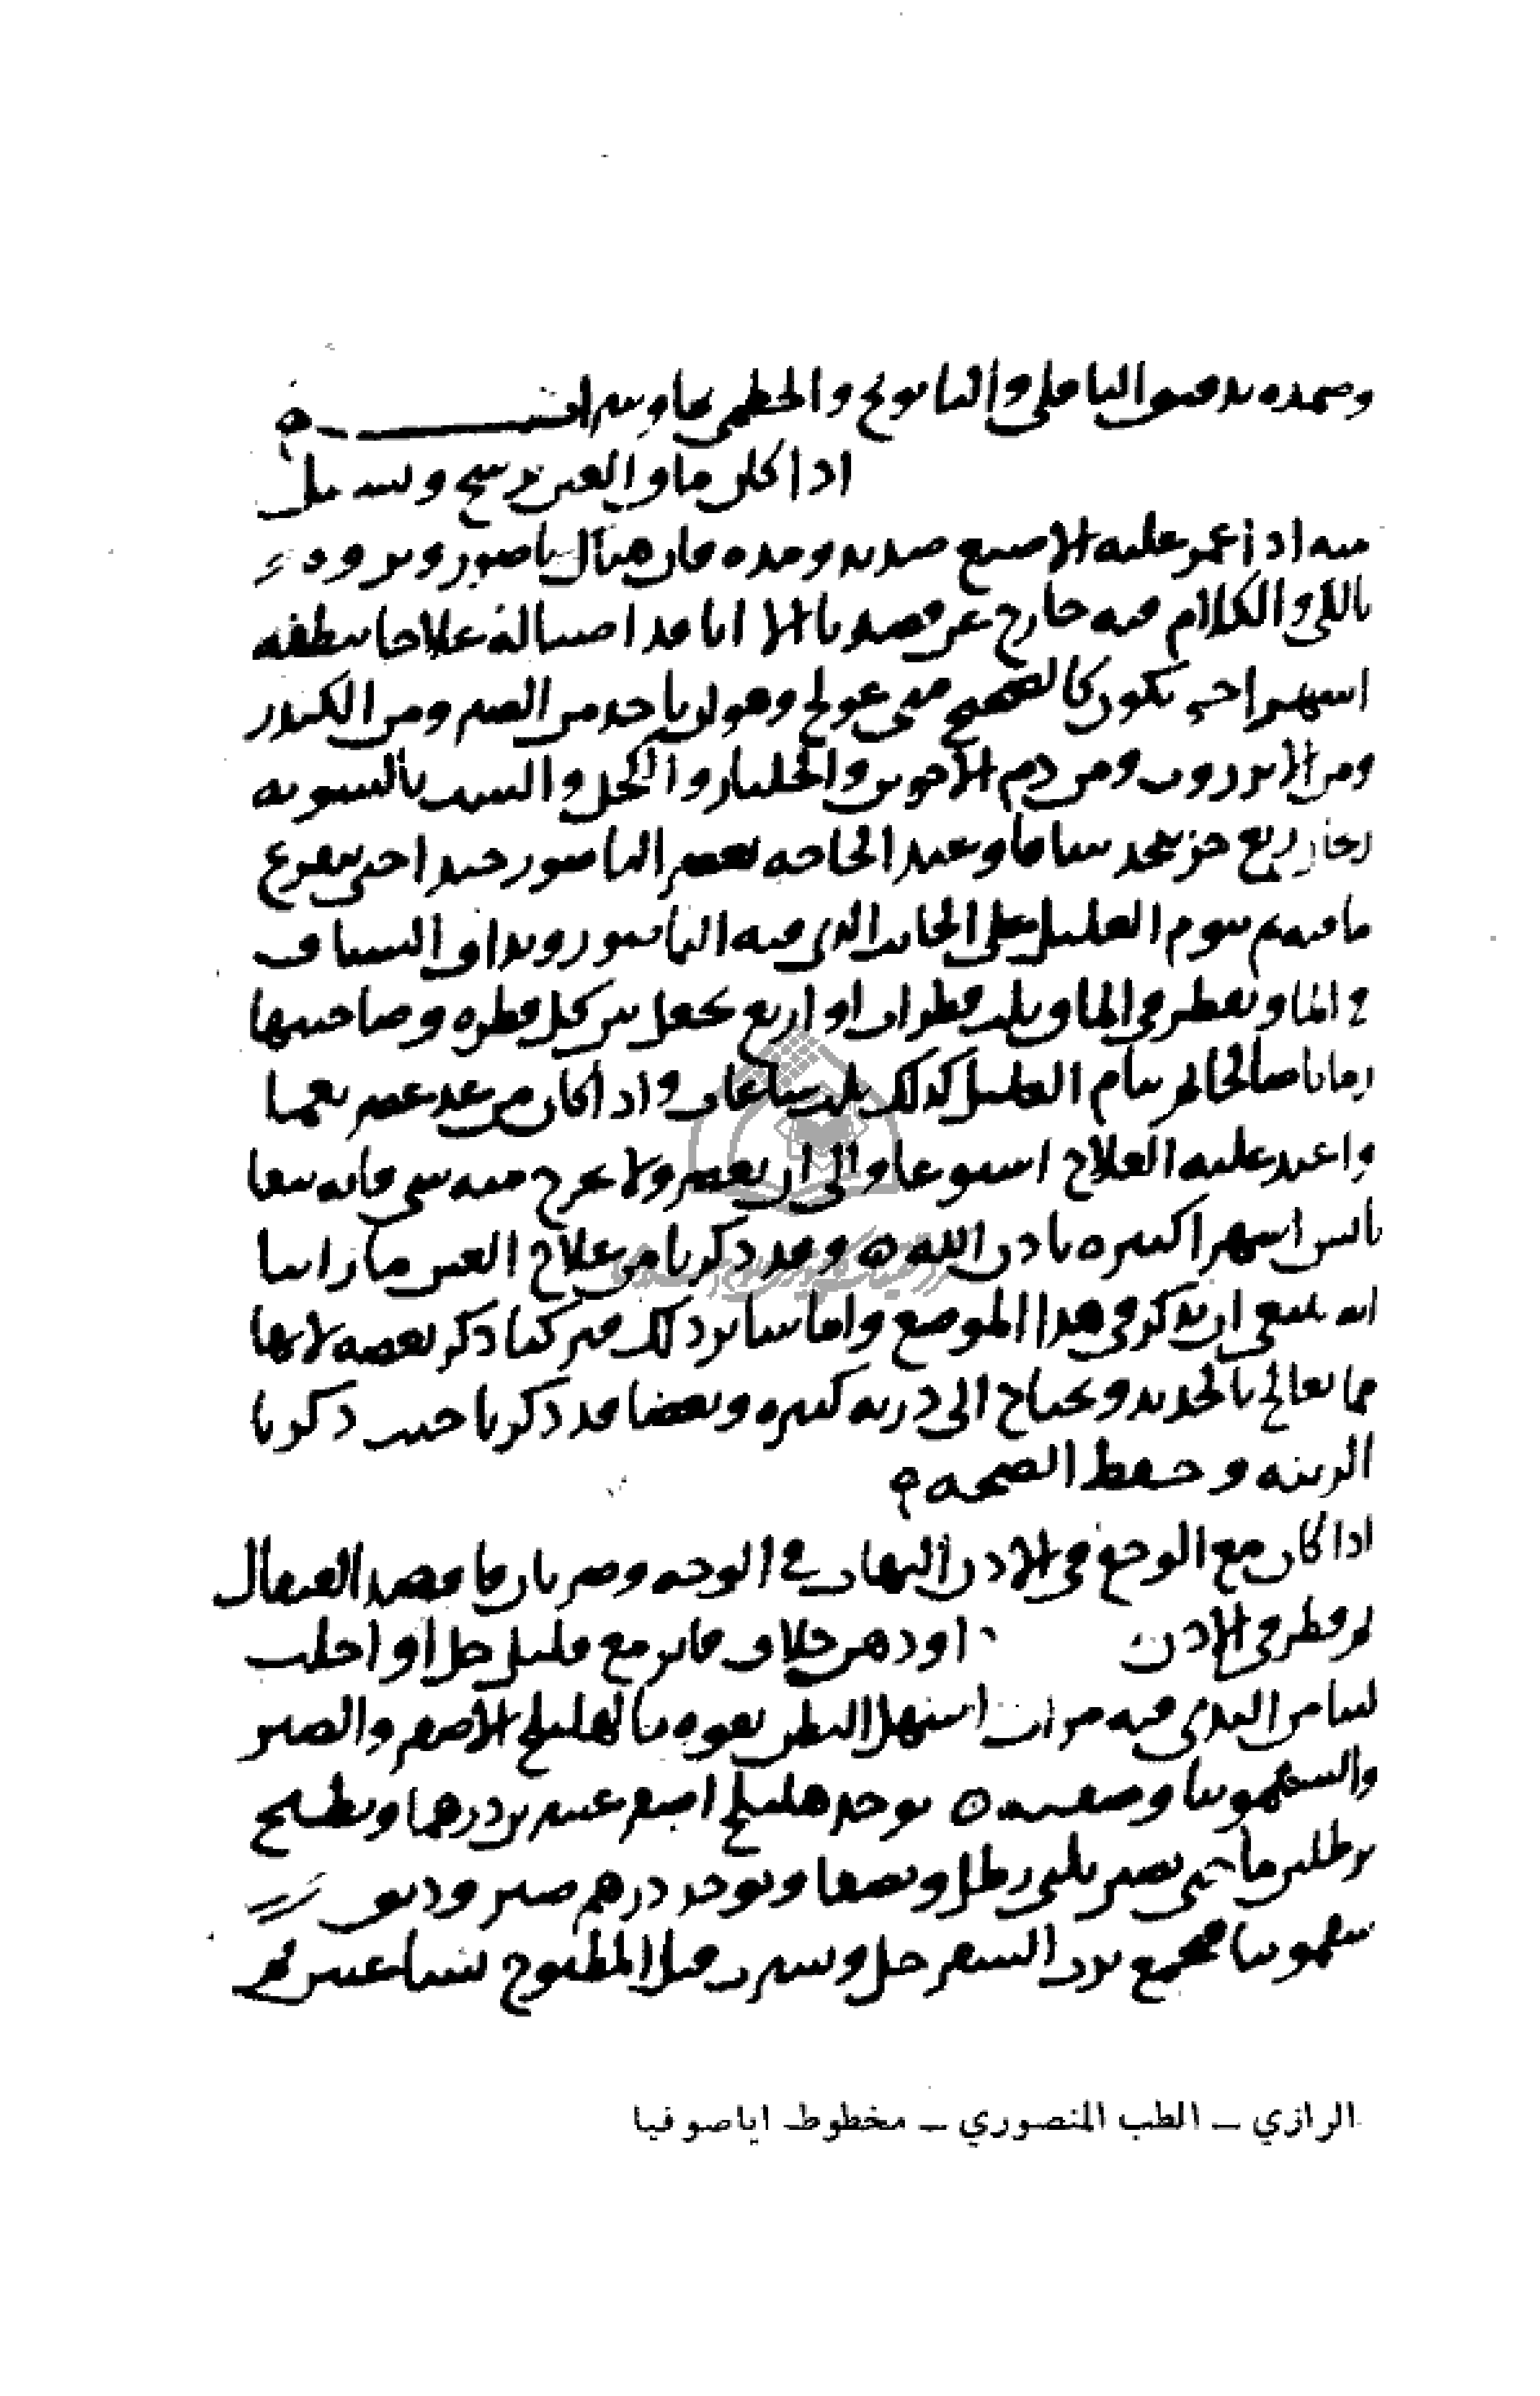 وضمده بدقيق الباقلى والبابونج والخطمى بماء وشراب
اذا كان ماق العين يرشح ويسيل
منه اذا غمز عليه الاصبع صديد ومده فان هناك ناصور ويبرؤ
بالكى والكلام فيه خارج عن قصدنا الا انا قد اصبنا له علاجا ينظفه
اشهرا حتى يكون كالصحيح متى عولج وهو ان ياخذ من الصبر ومن الكندر
ومن الانزروت ومن دم الاخوين والجلنار والكحل والشب بالسويه
زنجار ربع جز يتخذ شيافا وعند الحاجه يعصر الناصور جيدا حتى يفرغ
ما فيه ثم ينوم العليل على الجانب الذى فيه الناصور ويداف الشياف
فى الما ويقطر فى الماق ثلث قطرات او اربع يجعل بين كل قطره وصاحبتها
زمانا صالحا ثم ينام العليل كذلك ثلث ساعات واذا كان من غد عصر نعما
واعيد عليه العلاج اسبوعا والى ان يعصر ولا يخرج منه شى فانه يبقا
يابس اشهرا كثيره باذن الله ه وقد ذكرنا من علاج العين ما راينا
انه ينبغى ان يذكر فى هذا الموضع واما سائر ذلك فتركنا ذكر بعضه لانها
مما يعالج بالحديد ويحتاج الى دربه كثيره وبعضا قد ذكرنا حيث ذكرنا
الزينه وحفظ الصحه
اذا كان مع الوجع فى الاذن التهاب فى الوجه وضربان فافصد القيفال
ثم قطر فى الاذن او دهن خلاف فاتر مع قليل خل او احلب
لبنا من الثدى فيه مرات اسهل البطن بقوه بالهليلج الاصفر والصبر
والسقمونيا وصفته ه يوخذ هليلج اصفر عشرين درهما ويطبخ
برطلين ما حتى يصير ثلثى رطل ويصفا ويوخذ درهم صبر ودانق
سقمونيا فيجمع برب السفرجل ويشرب قبل المطبوخ بساعتين ثم
الرازي – الطب المنصوري – مخطوط اياصوفيا